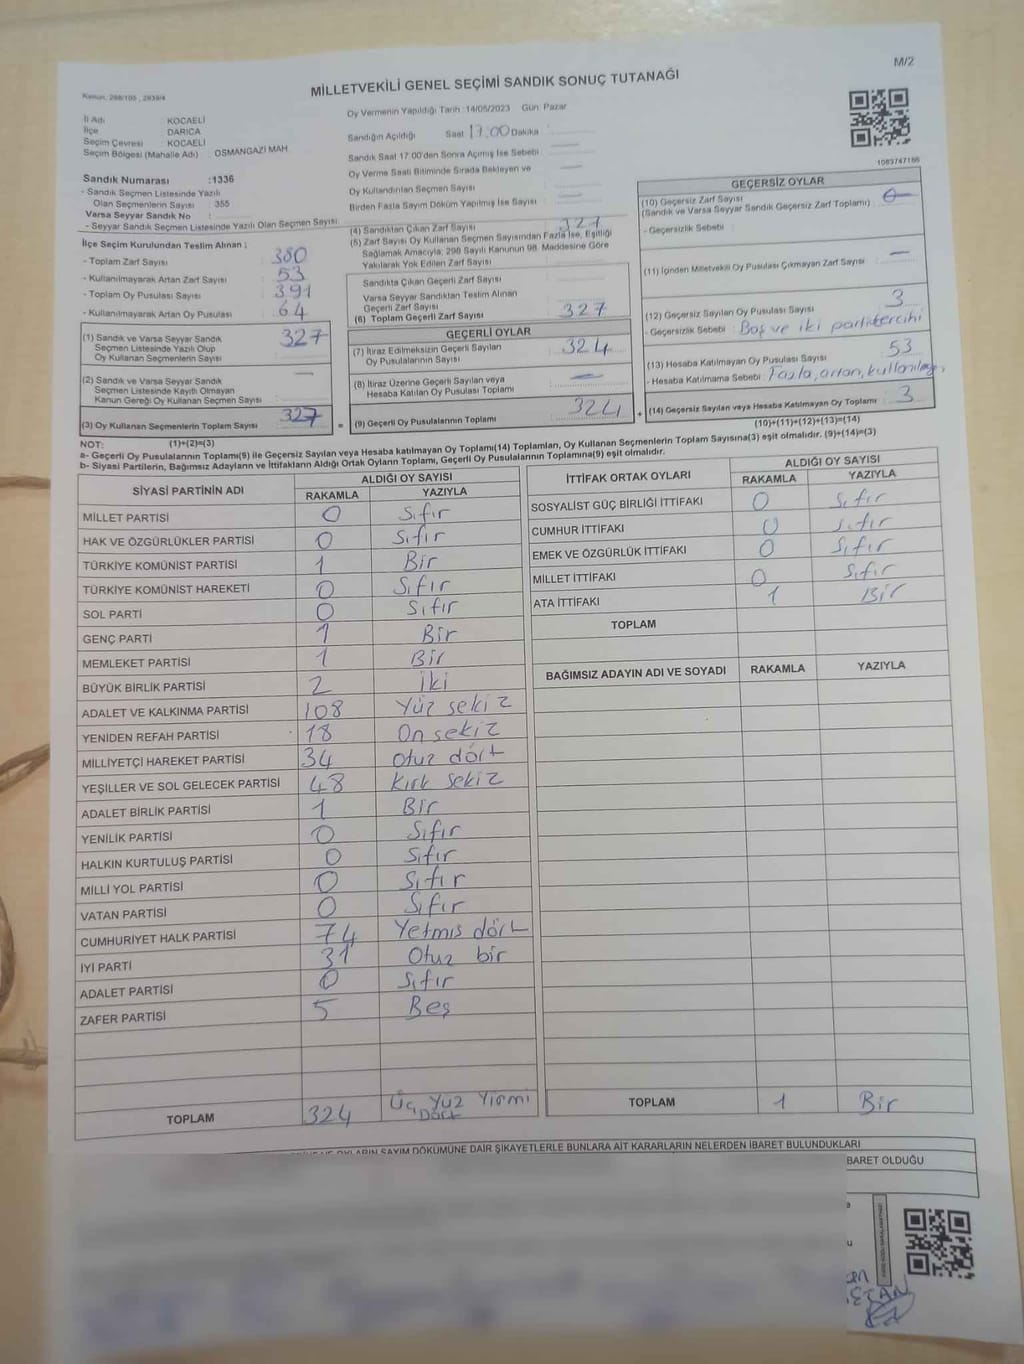 M/2
MİLLETVEKİLİ GENEL SEÇİMİ SANDIK SONUÇ TUTANAĞI
Kanun, 298/105 , 2839/4
İl Adı KOCAELİ
İlçe DARICA
Seçim Çevresi : KOCAELİ
Seçim Bölgesi (Mahalle Adı) : OSMANGAZİ MAH.
Sandık Numarası :1336
- Sandık Seçmen Listesinde Yazılı
Olan Seçmenlerin Sayısı : 355
Varsa Seyyar Sandık No :
- Seyyar Sandık Seçmen Listesinde Yazılı Olan Seçmen Sayısı
İlçe Seçim Kurulundan Teslim Alınan ;
- Toplam Zarf Sayısı : 380
- Kullanılmayarak Artan Zarf Sayısı : 53
- Toplam Oy Pusulası Sayısı : 391
- Kullanılmayarak Artan Oy Pusulası : 64
(1) Sandık ve Varsa Seyyar Sandık
Seçmen Listesinde Yazılı Olup
Oy Kullanan Seçmenlerin Sayısı : 327
(2) Sandık ve Varsa Seyyar Sandık
Seçmen Listesinde Kayıtlı Olmayan
Kanun Gereği Oy Kullanan Seçmen Sayısı : —
(3) Oy Kullanan Seçmenlerin Toplam Sayısı : 327
Oy Vermenin Yapıldığı Tarih : 14/05/2023 Gün: Pazar
Sandığın Açıldığı Saat 17.00 Dakika
Sandık Saat 17:00'den Sonra Açılmış İse Sebebi : —
Oy Verme Saati Bitiminde Sırada Bekleyen ve
Oy Kullandırılan Seçmen Sayısı : —
Birden Fazla Sayım Döküm Yapılmış İse Sayısı : —
(4) Sandıktan Çıkan Zarf Sayısı : 327
(5) Zarf Sayısı Oy Kullanan Seçmen Sayısından Fazla İse, Eşitliği
Sağlamak Amacıyla; 298 Sayılı Kanunun 98. Maddesine Göre
Yakılarak Yok Edilen Zarf Sayısı :
Sandıkta Çıkan Geçerli Zarf Sayısı :
Varsa Seyyar Sandıktan Teslim Alınan
Geçerli Zarf Sayısı :
(6) Toplam Geçerli Zarf Sayısı : 327
GEÇERLİ OYLAR
(7) İtiraz Edilmeksizin Geçerli Sayılan
Oy Pusulalarının Sayısı : 324
(8) İtiraz Üzerine Geçerli Sayılan veya
Hesaba Katılan Oy Pusulası Toplamı : —
= (9) Geçerli Oy Pusulalarının Toplamı : 324
1083747186
GEÇERSİZ OYLAR
(10) Geçersiz Zarf Sayısı : 0
(Sandık ve Varsa Seyyar Sandık Geçersiz Zarf Toplamı)
- Geçersizlik Sebebi :
(11) İçinden Milletvekili Oy Pusulası Çıkmayan Zarf Sayısı : —
(12) Geçersiz Sayılan Oy Pusulası Sayısı : 3
- Geçersizlik Sebebi : Boş ve iki parti tercihi
(13) Hesaba Katılmayan Oy Pusulası Sayısı : 53
- Hesaba Katılmama Sebebi : Fazla, artan,
+ (14) Geçersiz Sayılan veya Hesaba Katılmayan Oy Toplamı : 3
(10)+(11)+(12)+(13)=(14)
NOT: (1)+(2)=(3)
a- Geçerli Oy Pusulalarının Toplamı(9) ile Geçersiz Sayılan veya Hesaba katılmayan Oy Toplamı(14) Toplamları, Oy Kullanan Seçmenlerin Toplam Sayısına(3) eşit olmalıdır. (9)+(14)=(3)
b- Siyasi Partilerin, Bağımsız Adayların ve İttifakların Aldığı Ortak Oyların Toplamı, Geçerli Oy Pusulalarının Toplamına(9) eşit olmalıdır.
SİYASİ PARTİNİN ADI ALDIĞI OY SAYISI
RAKAMLA YAZIYLA
MİLLET PARTİSİ 0 Sıfır
HAK VE ÖZGÜRLÜKLER PARTİSİ 0 Sıfır
TÜRKİYE KOMÜNİST PARTİSİ 1 Bir
TÜRKİYE KOMÜNİST HAREKETİ 0 Sıfır
SOL PARTİ 0 Sıfır
GENÇ PARTİ 1 Bir
MEMLEKET PARTİSİ 1 Bir
BÜYÜK BİRLİK PARTİSİ 2 İki
ADALET VE KALKINMA PARTİSİ 108 Yüz sekiz
YENİDEN REFAH PARTİSİ 18 On sekiz
MİLLİYETÇİ HAREKET PARTİSİ 34 Otuz dört
YEŞİLLER VE SOL GELECEK PARTİSİ 48 Kırk sekiz
ADALET BİRLİK PARTİSİ 1 Bir
YENİLİK PARTİSİ 0 Sıfır
HALKIN KURTULUŞ PARTİSİ 0 Sıfır
MİLLİ YOL PARTİSİ 0 Sıfır
VATAN PARTİSİ 0 Sıfır
CUMHURİYET HALK PARTİSİ 74 Yetmiş dört
İYİ PARTİ 31 Otuz bir
ADALET PARTİSİ 0 Sıfır
ZAFER PARTİSİ 5 Beş
TOPLAM 324 Üç Yüz Yirmi
Dört
İTTİFAK ORTAK OYLARI ALDIĞI OY SAYISI
RAKAMLA YAZIYLA
SOSYALİST GÜÇ BİRLİĞİ İTTİFAKI 0 Sıfır
CUMHUR İTTİFAKI 0 Sıfır
EMEK VE ÖZGÜRLÜK İTTİFAKI 0 Sıfır
MİLLET İTTİFAKI 0 Sıfır
ATA İTTİFAKI 1 Bir
TOPLAM
BAĞIMSIZ ADAYIN ADI VE SOYADI RAKAMLA YAZIYLA
TOPLAM 1 Bir
OYLARIN SAYIM DÖKÜMÜNE DAİR ŞİKAYETLERLE BUNLARA AİT KARARLARIN NELERDEN İBARET BULUNDUKLARI
İBARET OLDUĞU